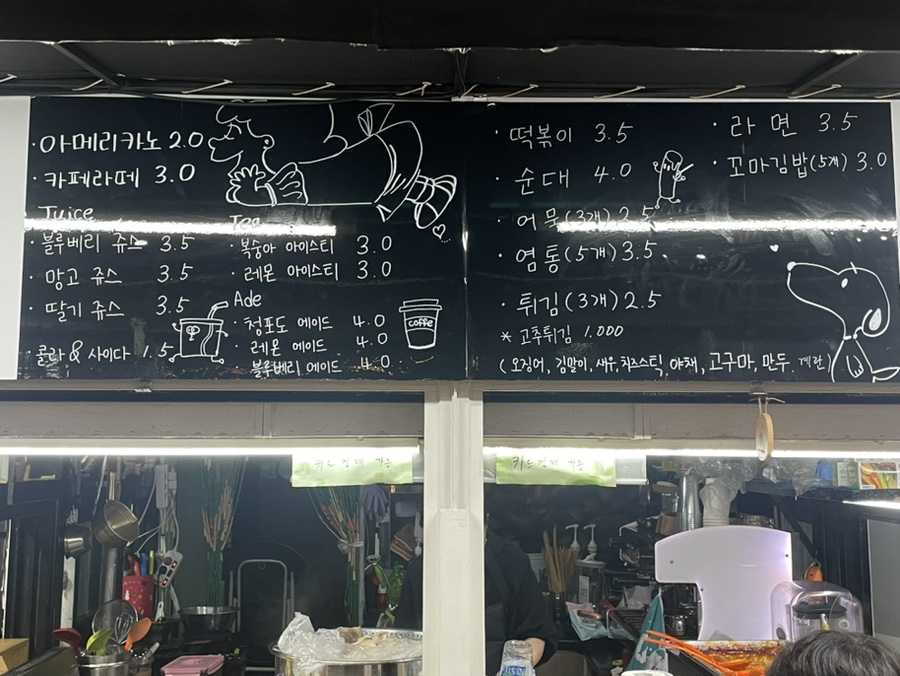 · 아메리카노 2.0
· 카페라떼 3.0
Juice
· 블루베리 쥬스 3.5
· 망고 쥬스 3.5
· 딸기 쥬스 3.5
콜라 & 사이다 1.5
Tea
· 복숭아 아이스티 3.0
· 레몬 아이스티 3.0
Ade
· 청포도 에이드 4.0
· 레몬 에이드 4.0
블루베리 에이드 4.0
coffe
· 떡볶이 3.5
· 순대 4.0
· 어묵(3개) 2.5
· 염통(5개) 3.5
· 튀김(3개) 2.5
* 고추튀김 1.000
( 오징어, 김말이, 새우, 치즈스틱, 야채, 고구마, 만두. 계란)
· 라면 3.5
· 꼬마김밥(5개) 3.0
카드결제 가능
카드결제 가능